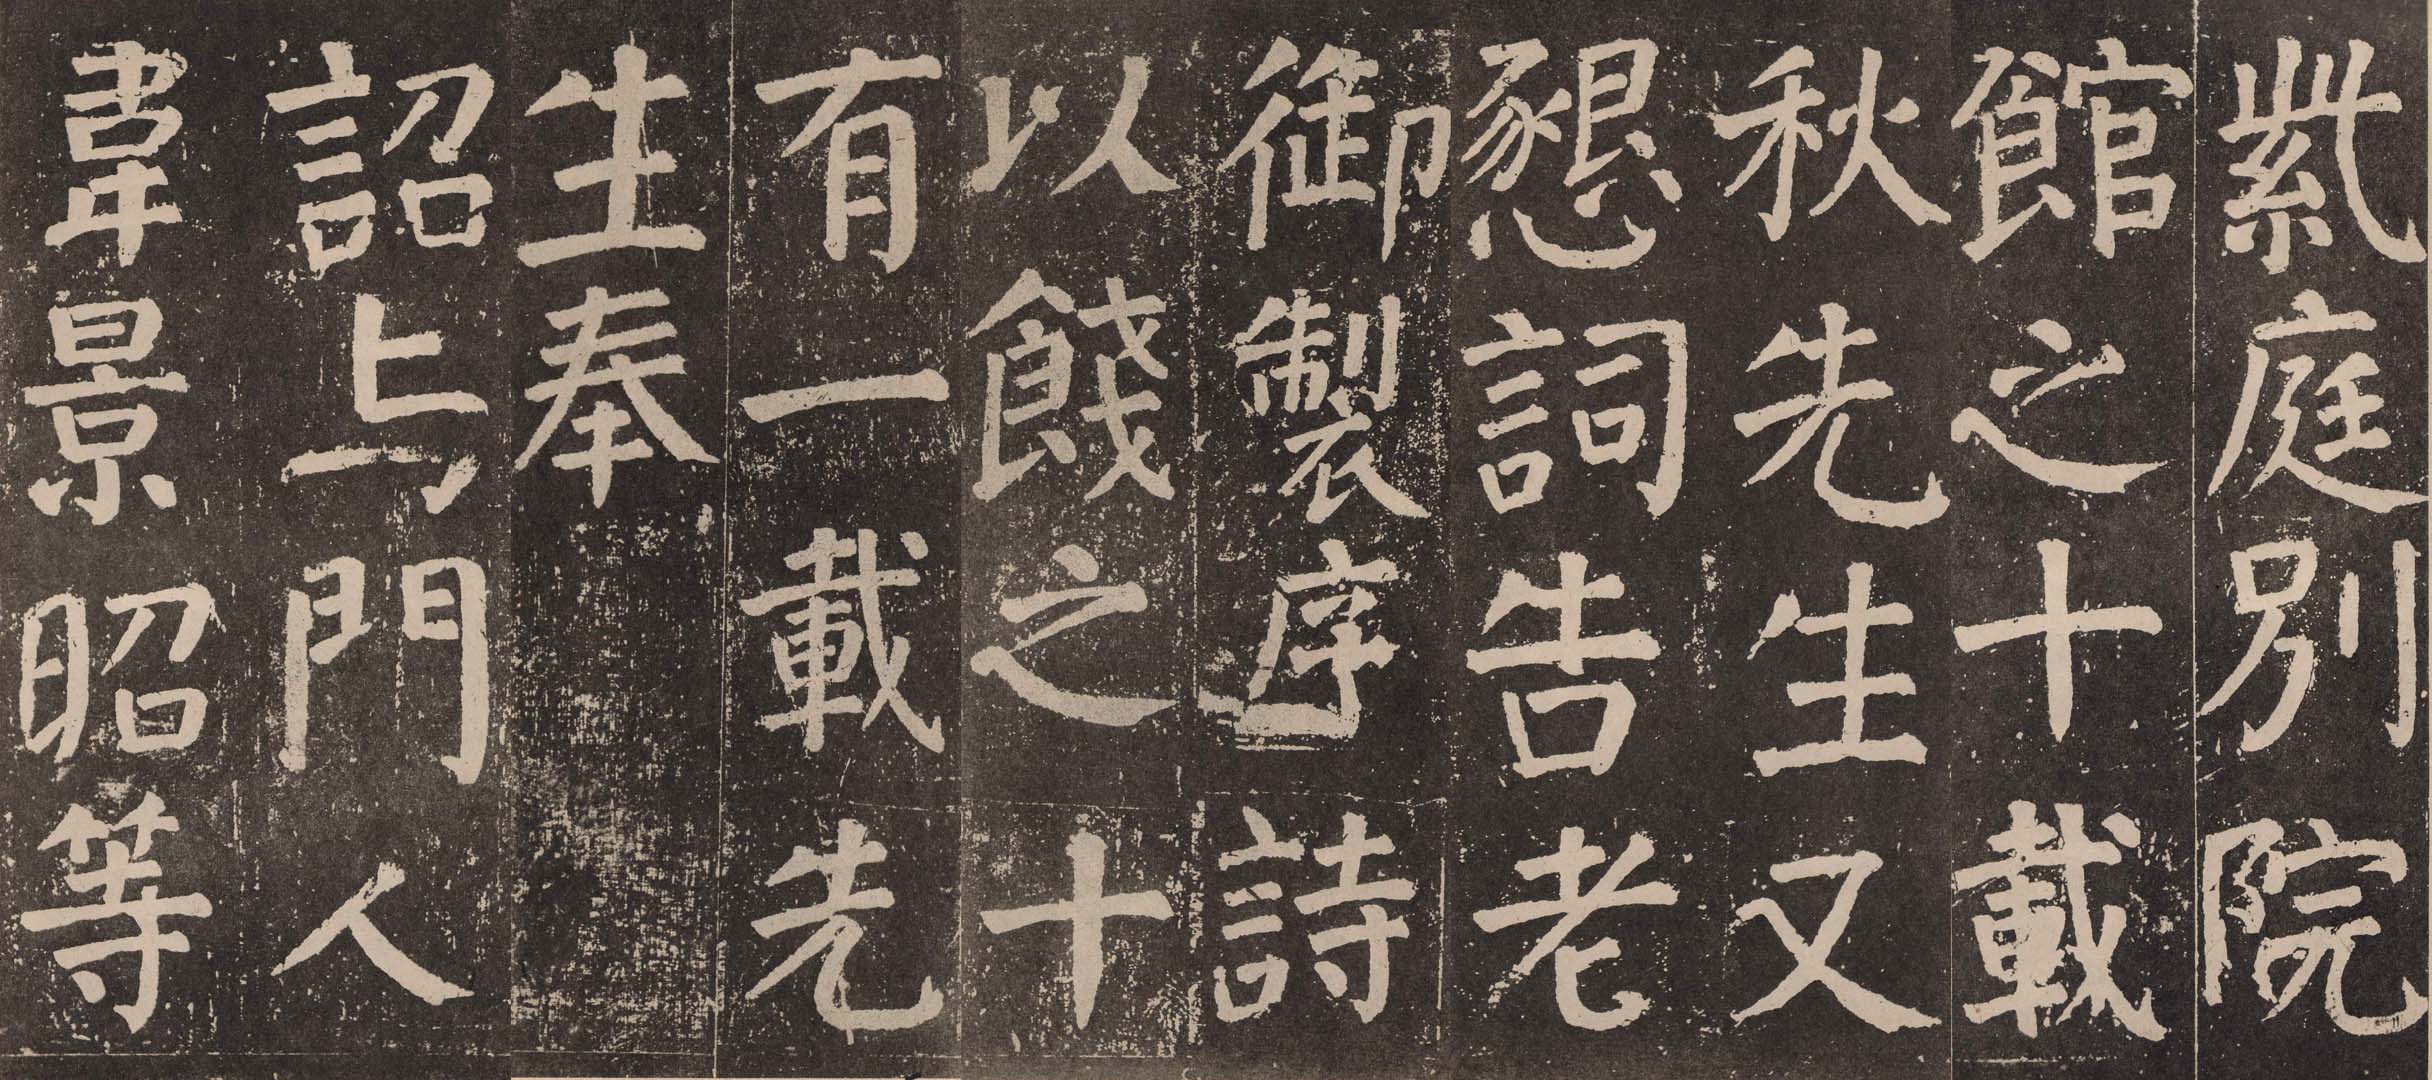 紫庭別院
館之十載
秋先生又
懇詞告老
御製序詩
以餞之十
有一載先
生奉
詔与門人
韋景昭等